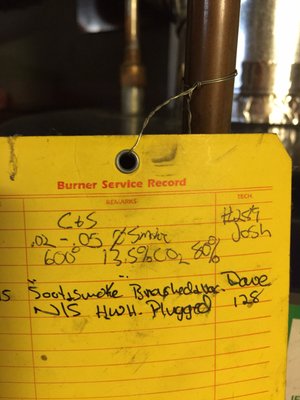 Burner Service Record
REMARKS
TECH.
C+S
#254
.02 - .05 Smoke Josh
600° 13.5% CO2 80%
15 Soot & smoke Brushed & Vac. Dave
N/S HWH. Plugged 128